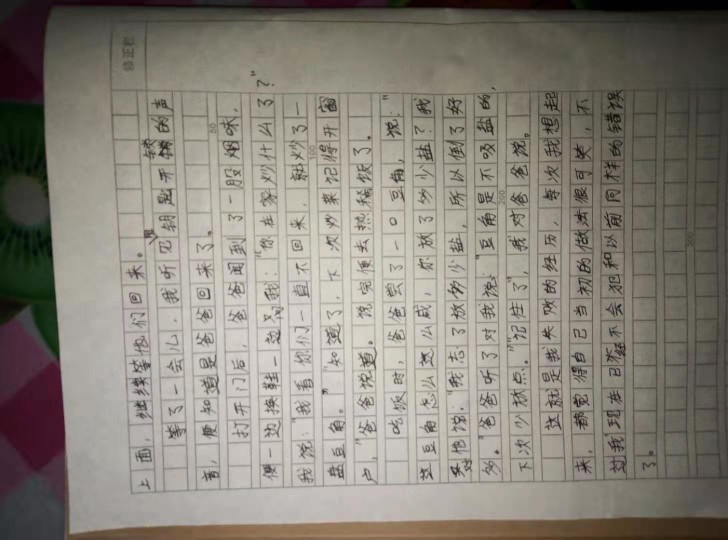 上面，继续等他们回来。
等了一会儿，我听见钥匙开锁的声
音，便知道是爸爸回来了。
打开门后，爸爸闻到了一股烟味，
便一边换鞋一边问我：“你在家炒什么了？”
我说：“我看你们一直不回来，就炒了一
盘豆角。”“知道了，下次炒菜记得开窗
户，”爸爸说道。说完便去热稀饭了。
吃饭时，爸爸尝了一口豆角，说：“
这豆角怎么这么咸，你放了多少盐？我
对他说：“我忘了放多少盐，所以倒了好
多。”爸爸听了对我说：“豆角是不吸盐的，
下次少放点。”“记住了”，我对爸爸说。
这就是我失败的经历，每次我想起
来，都觉得自己当初的做法很可笑，不
过我现在已经不会犯和以前同样的错误
了。
100
200
300